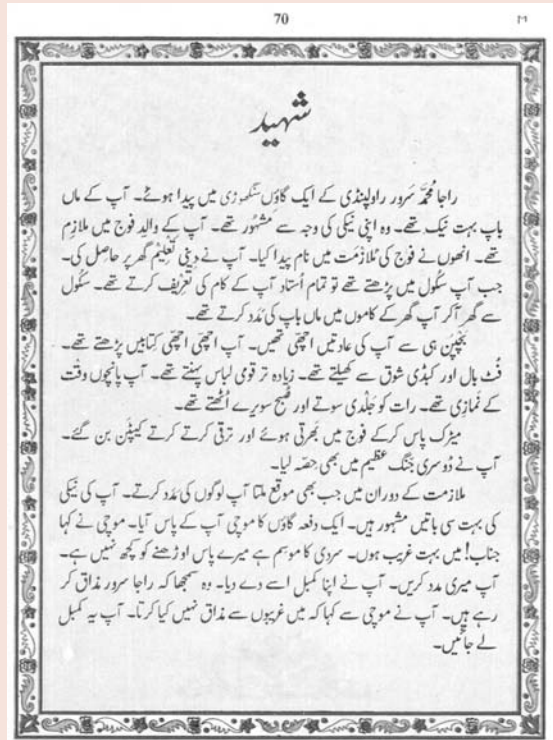 70
۳۱
شہید
راجا مُحمَّد سَرور راولپنڈی کے ایک گاؤں سنگھوڑی میں پیدا ہوئے۔ آپ کے ماں
باپ بہت نیک تھے۔ وہ اپنی نیکی کی وجہ سے مَشہُور تھے۔ آپ کے والِد فوج میں ملازِم
تھے۔ انھوں نے فوج کی مُلازمَت میں نام پیدا کیا۔ آپ نے دِینی تَعلِیم گھر پر حاصِل کی۔
جب آپ سکُول میں پڑھتے تھے تو تمام اُستاد آپ کے کام کی تعرِیف کرتے تھے۔ سکُول
سے گھر آ کر آپ گھر کے کاموں میں ماں باپ کی مَدَد کرتے تھے۔
بَچپَن ہی سے آپ کی عادتیں اچھّی تھیں۔ آپ اچھّی اچھّی کتابیں پڑھتے تھے۔
فُٹ بال اور کبڈی شوق سے کھیلتے تھے۔ زیادہ تر قومی لباس پہنتے تھے۔ آپ پانچوں وقت
کے نَمازی تھے۔ رات کو جَلْدی سوتے اور صُبح سویرے اُٹھتے تھے۔
میٹرک پاس کرکے فوج میں بَھرتی ہوئے اور ترقی کرتے کرتے کیپٹن بن گئے۔
آپ نے دُوسری جَنگ عظِیم میں بھی حِصّہ لیا۔
ملازمت کے دوران میں جب بھی موقع ملتا آپ لوگوں کی مَدَد کرتے۔ آپ کی نیکی
کی بہت سی باتیں مشہور ہیں۔ ایک دفعہ گاؤں کا موچی آپ کے پاس آیا۔ موچی نے کہا
جناب! میں بہت غریب ہوں۔ سردی کا موسم ہے میرے پاس اوڑھنے کو کچھ نہیں ہے۔
آپ میری مدد کریں۔ آپ نے اپنا کمبل اسے دے دیا۔ وہ سمجھا کہ راجا سرور مذاق کر
رہے ہیں۔ آپ نے موچی سے کہا کہ میں غریبوں سے مذاق نہیں کیا کرتا۔ آپ یہ کمبل
لے جائیں۔